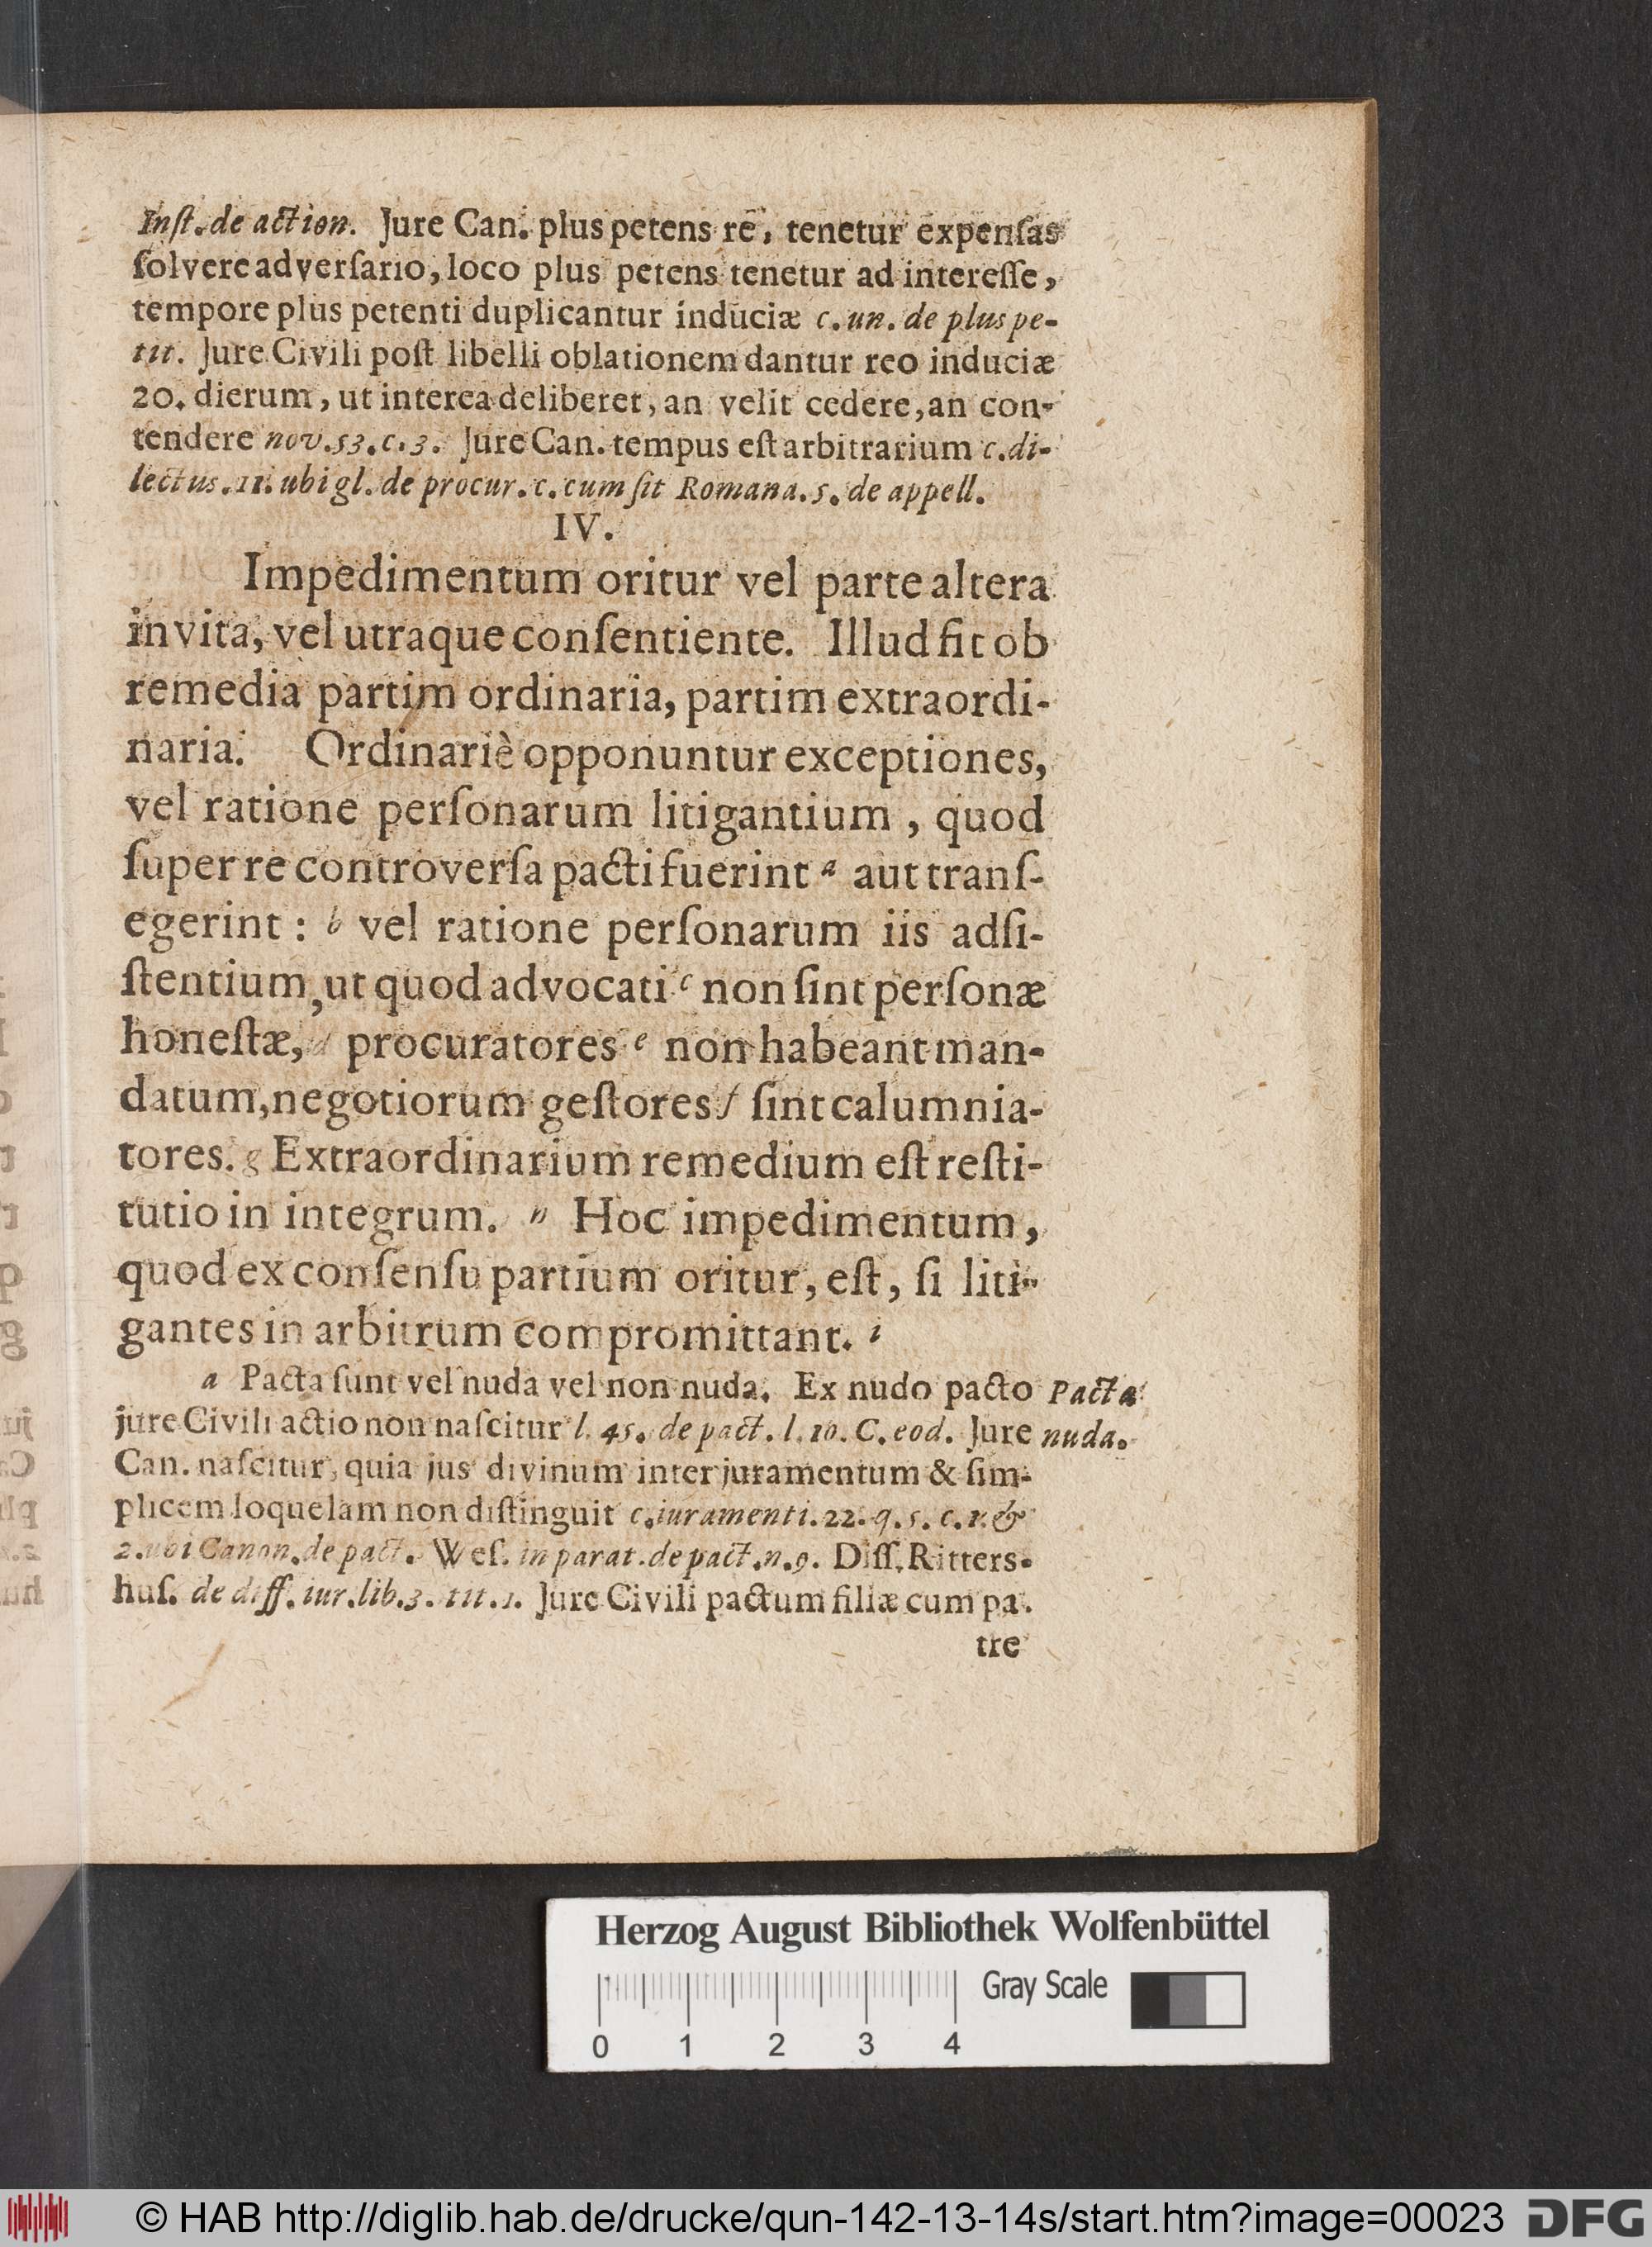 Inſt. de action. Jure Can. plus petens rē, tenetur expenſas
ſolvere adverſario, loco plus petens tenetur ad intereſſe,
tempore plus petenti duplicantur induciæ c. un. de plus pe-
tit. Jure Civili poſt libelli oblationem dantur reo induciæ
20. dierum, ut interea deliberet, an velit cedere, an con-
tendere nov. 53. c. 3. Jure Can. tempus eſt arbitrarium c. di-
lectus. 11. ubi gl. de procur. c. cum ſit Romana. 5. de appell.
IV.
Impedimentum oritur vel parte altera
invita, vel utraque conſentiente. Illud fit ob
remedia partim ordinaria, partim extraordi-
naria. Ordinariè opponuntur exceptiones,
vel ratione perſonarum litigantium, quod
ſuper re controverſa pacti fuerint a aut tranſ-
egerint : b vel ratione perſonarum iis adſi-
ſtentium, ut quod advocati c non ſint perſonæ
honeſtæ, d procuratores e non habeant man-
datum, negotiorum geſtores f ſint calumnia-
tores. g Extraordinarium remedium eſt reſti-
tutio in integrum. h Hoc impedimentum,
quod ex conſenſu partium oritur, eſt, ſi liti-
gantes in arbitrum compromittant. i
a Pacta ſunt vel nuda vel non nuda. Ex nudo pacto Pacta
jure Civili actio non naſcitur l. 45. de pact. l. 10. C. eod. Jure nuda.
Can. naſcitur, quia jus divinum inter juramentum & ſim-
plicem loquelam non diſtinguit c. iuramenti. 22. q. 5. c. 1. &
2. ubi Canon. de pact. Weſ. in parat. de pact. n. 9. Diſſ. Ritters-
huſ. de diff. iur. lib. 3. tit. 1. Jure Civili pactum filiæ cum pa-
tre
Herzog August Bibliothek Wolfenbüttel
Gray Scale
0 1 2 3 4
© HAB http://diglib.hab.de/drucke/qun-142-13-14s/start.htm?image=00023 DFG